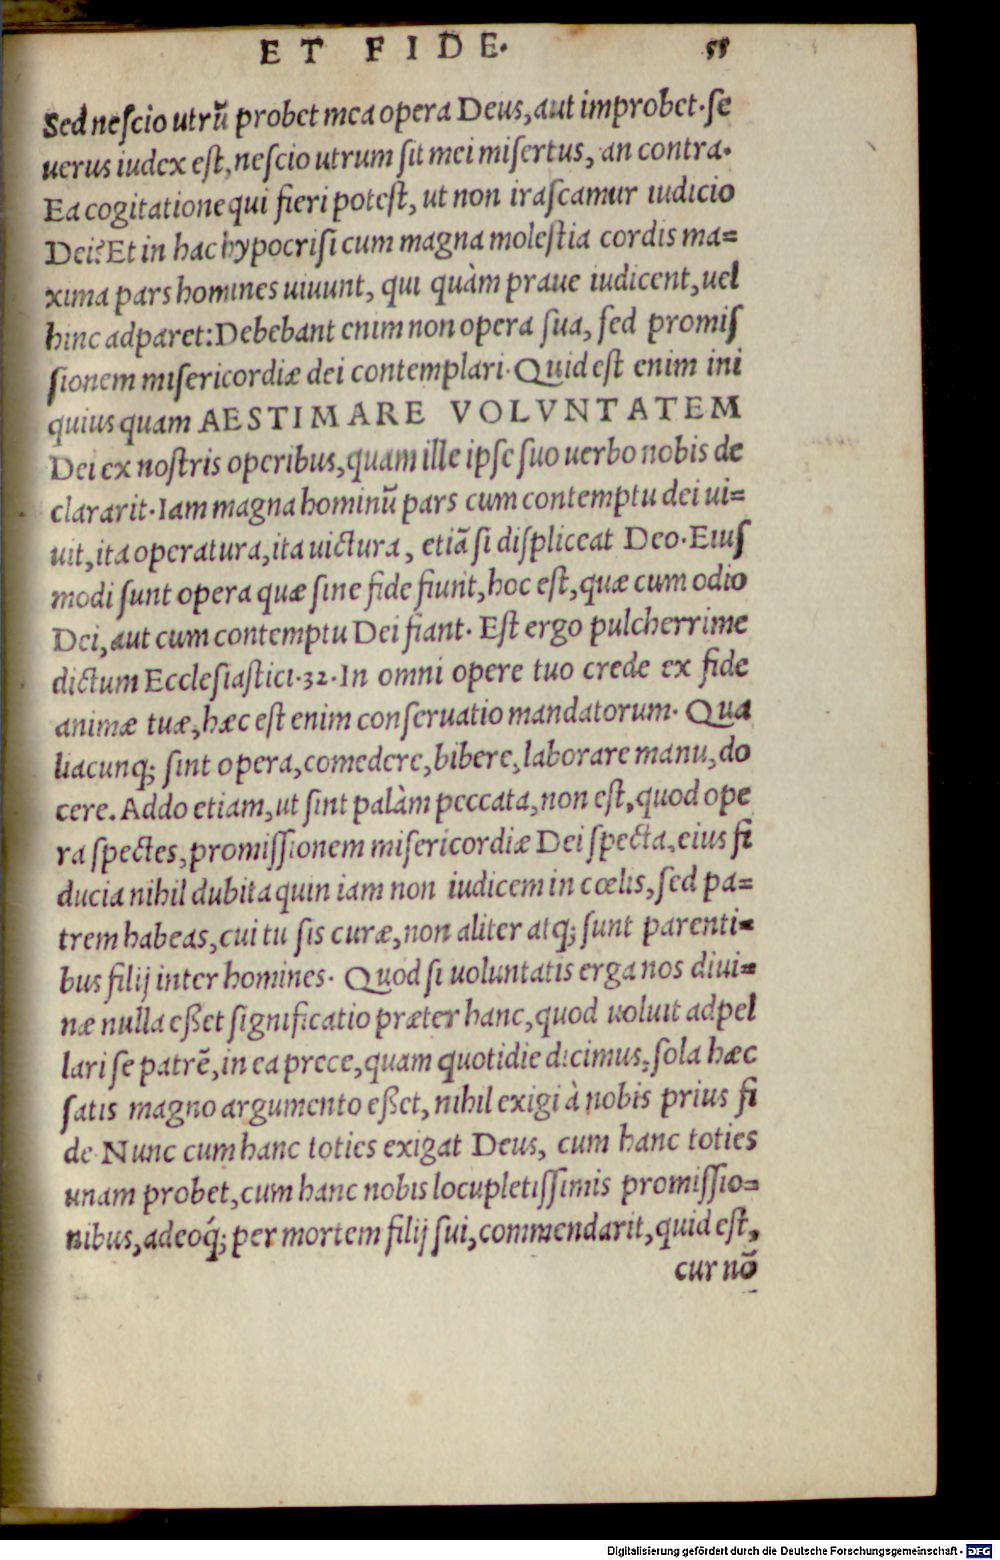 ET FIDE. 55
Sed nescio utrũ probet mea opera Deus, aut improbet. se
uerus iudex est, nescio utrum sit mei misertus, an contra.
Ea cogitatione qui fieri potest, ut non irascamur iudicio
Dei? Et in hac hypocrisi cum magna molestia cordis ma=
xima pars homines uiuunt, qui quàm praue iudicent, uel
hinc adparet: Debebant enim non opera sua, sed promis
sionem misericordiæ dei contemplari. Quid est enim ini
quius quam AESTIMARE VOLVNTATEM
Dei ex nostris operibus, quam ille ipse suo uerbo nobis de
clararit. Iam magna hominũ pars cum contemptu dei ui=
uit, ita operatura, ita uictura, etiã si displiceat Deo. Eius
modi sunt opera quæ sine fide fiunt, hoc est, quæ cum odio
Dei, aut cum contemptu Dei fiant. Est ergo pulcherrime
dictum Ecclesiastici.32. In omni opere tuo crede ex fide
animæ tuæ, hæc est enim conseruatio mandatorum. Qua
liacunq; sint opera, comedere, bibere, laborare manu, do
cere. Addo etiam, ut sint palàm peccata, non est, quod ope
ra spectes, promissionem misericordiæ Dei specta, eius fi
ducia nihil dubita quin iam non iudicem in cœlis, sed pa=
trem habeas, cui tu sis curæ, non aliter atq; sunt parenti=
bus filij inter homines. Quod si uoluntatis erga nos diui=
næ nulla eßet significatio præter hanc, quod uoluit adpel
lari se patrẽ, in ea prece, quam quotidie dicimus, sola hæc
satis magno argumento eßet, nihil exigi à nobis prius fi
de. Nunc cum hanc toties exigat Deus, cum hanc toties
unam probet, cum hanc nobis locupletissimis promissio=
nibus, adeoq́; per mortem filij sui, commendarit, quid est,
cur nõ
Digitalisierung gefördert durch die Deutsche Forschungsgemeinschaft - DFG